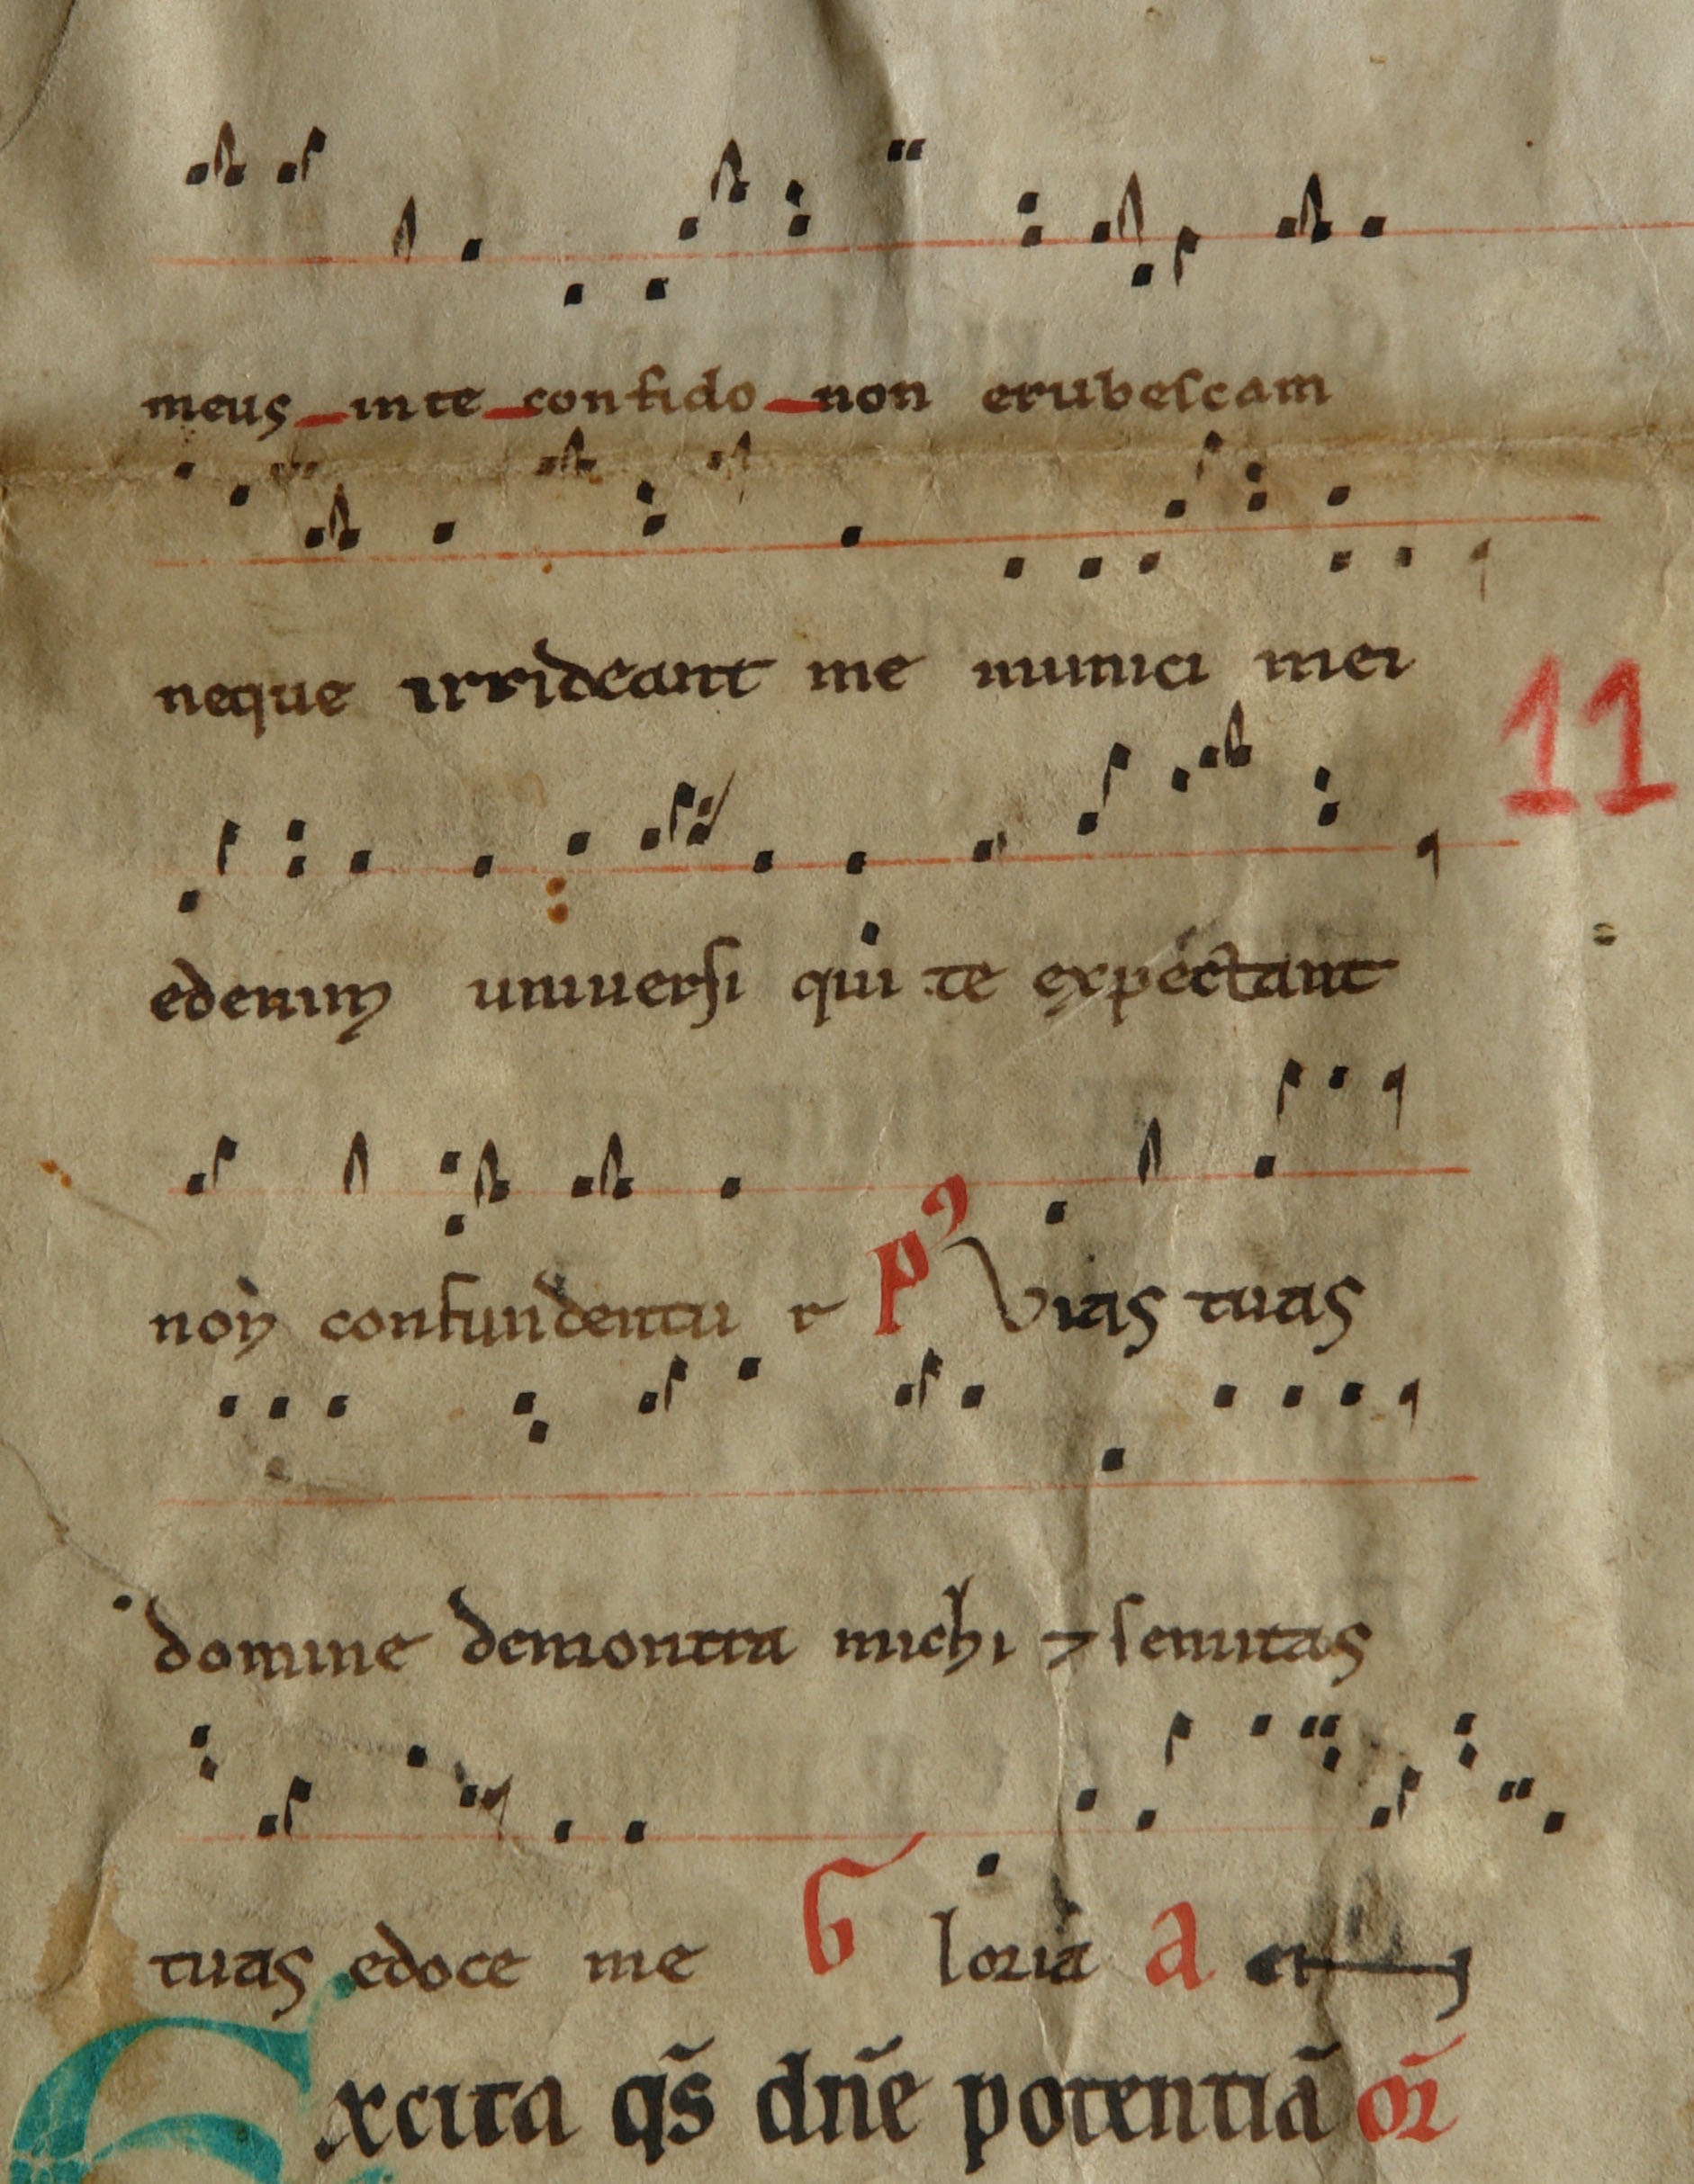 meus in te confido non erubescam
neque irrideant me inimici mei
11
etenim universi qui te expectant
non confundentu r p⁹ Vias tuas
domine demontra michi ⁊ semitas
tuas edoce me G loria a
Excita qs̃ dñe potentiã or̃